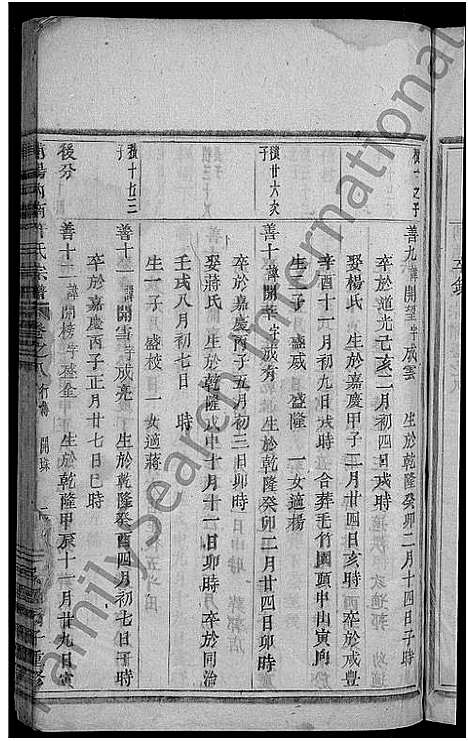 善九諱開望字成雲 生於乾隆癸卯二月十四日子時
卒於道光己亥二月初四日戌時
娶楊氏 生於嘉慶甲子二月廿四日亥時 卒於咸豐
辛酉十一月初九日戌時 合葬毛竹園頭申山寅向
生二子 盛咸 盛隆 一女適楊
鎮廿六次子
善十諱開華字成有 生於乾隆癸卯二月廿四日卯時
卒於嘉慶丙子五月初三日卯時
娶蔣氏 生於乾隆戊申十月十一日卯時 卒於同治
壬戌八月初七日 時
生一子 盛校 一女適蔣
善十一諱開雪字成亮 生於乾隆癸酉四月初七日子時
卒於嘉慶丙子正月廿七日巳時
後分
善十二諱開榜字 金 生於乾隆甲辰十一月廿九日寅
氏宗譜 卷之八
FamilySearch International